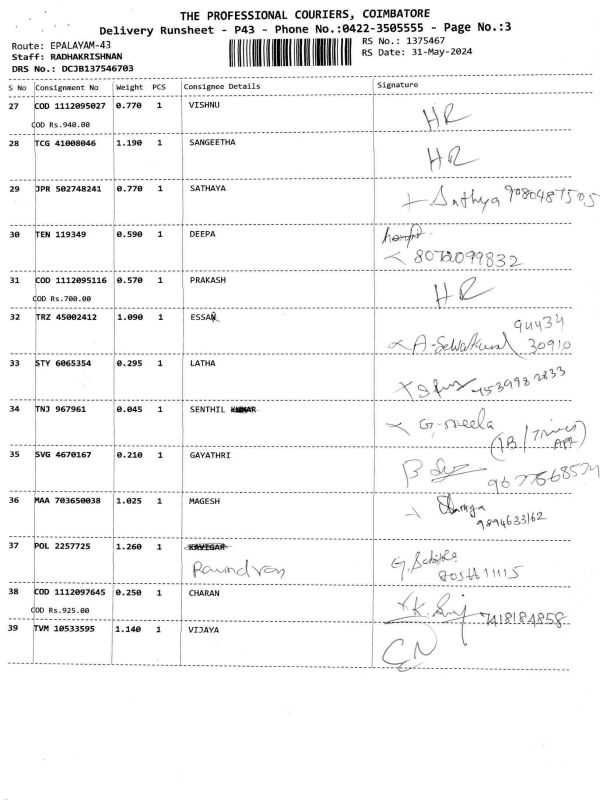 THE PROFESSIONAL COURIERS, COIMBATORE
Delivery Runsheet - P43 - Phone No.:0422-3505555 - Page No.:3
Route: EPALAYAM-43 RS No.: 1375467
Staff: RADHAKRISHNAN RS Date: 31-May-2024
DRS No.: DCJB137546703
S No Consignment No Weight PCS Consignee Details Signature
27 COD 1112095027 0.770 1 VISHNU HR
COD Rs.940.00
28 TCG 41008046 1.190 1 SANGEETHA HR
29 JPR 502748241 0.770 1 SATHAYA Sathya 9080487505
30 TEN 119349 0.590 1 DEEPA
31 COD 1112095116 0.570 1 PRAKASH HR
COD Rs.700.00
32 TRZ 45002412 1.090 1 ESSA 94434
30910
33 STY 6065354 0.295 1 LATHA
34 TNJ 967961 0.045 1 SENTHIL KUMAR G. Neela
35 SVG 4670167 0.210 1 GAYATHRI
36 MAA 703650038 1.025 1 MAGESH
9894633162
37 POL 2257725 1.260 1 KAVIGAR
8056611115
38 COD 1112097645 0.250 1 CHARAN 7418184858
COD Rs.925.00
39 TVM 10533595 1.140 1 VIJAYA CN